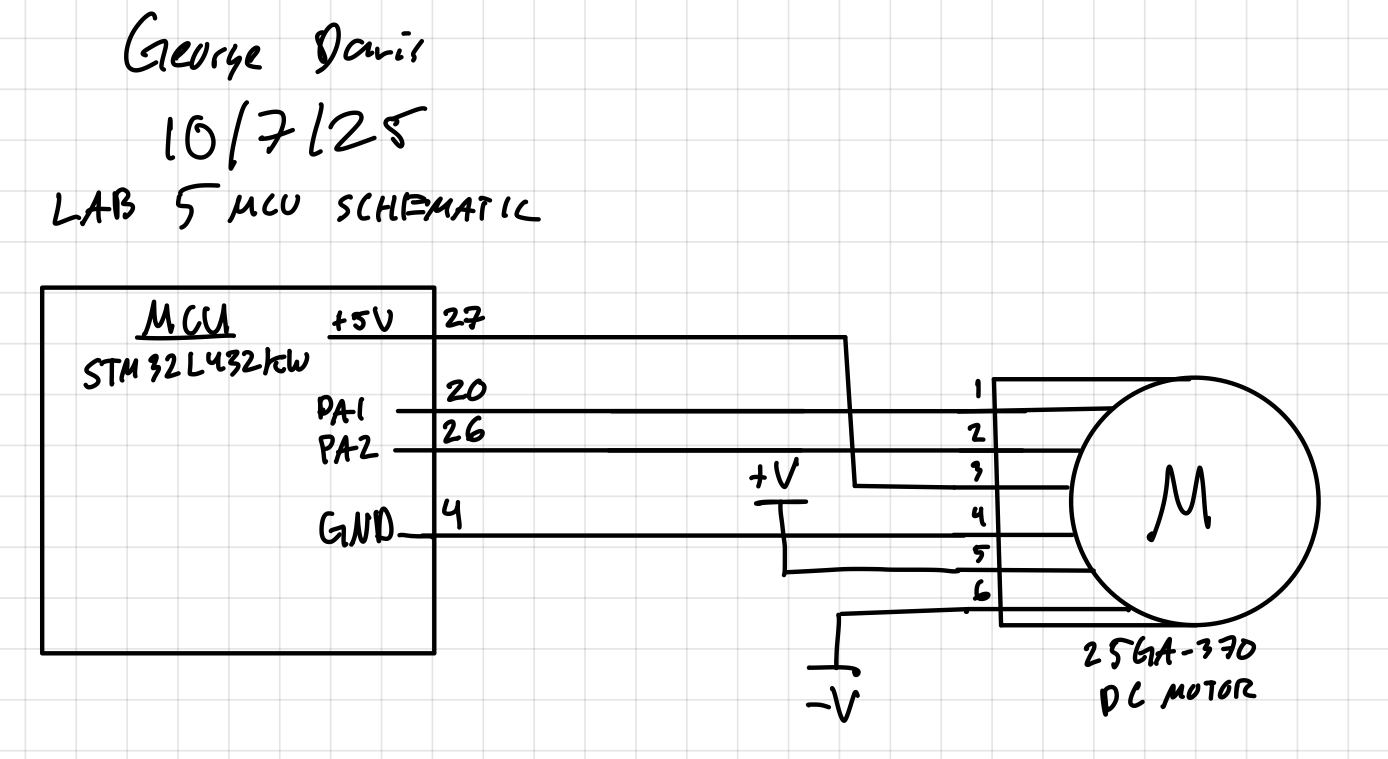 George Davis
10/7/25
LAB 5 MCU SCHEMATIC
MCU
STM32L432KW
+5V
27
PA1
20
PA2
26
GND
4
1
2
3
4
5
6
+V
-V
M
25GA-370
DC MOTOR